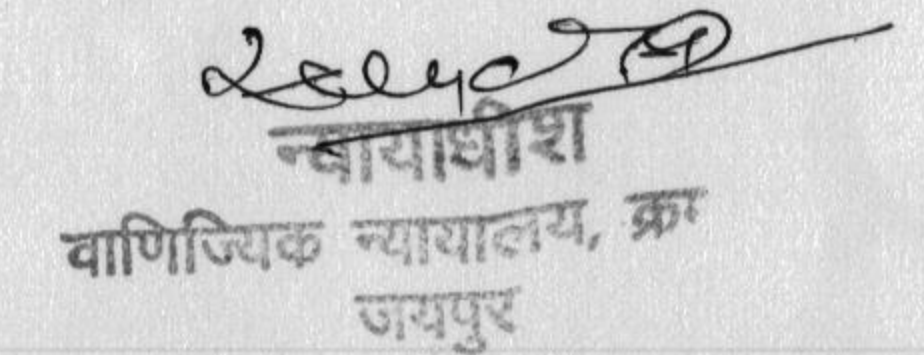 न्यायाधीश
वाणिज्यिक न्यायालय, क्र
जयपुर